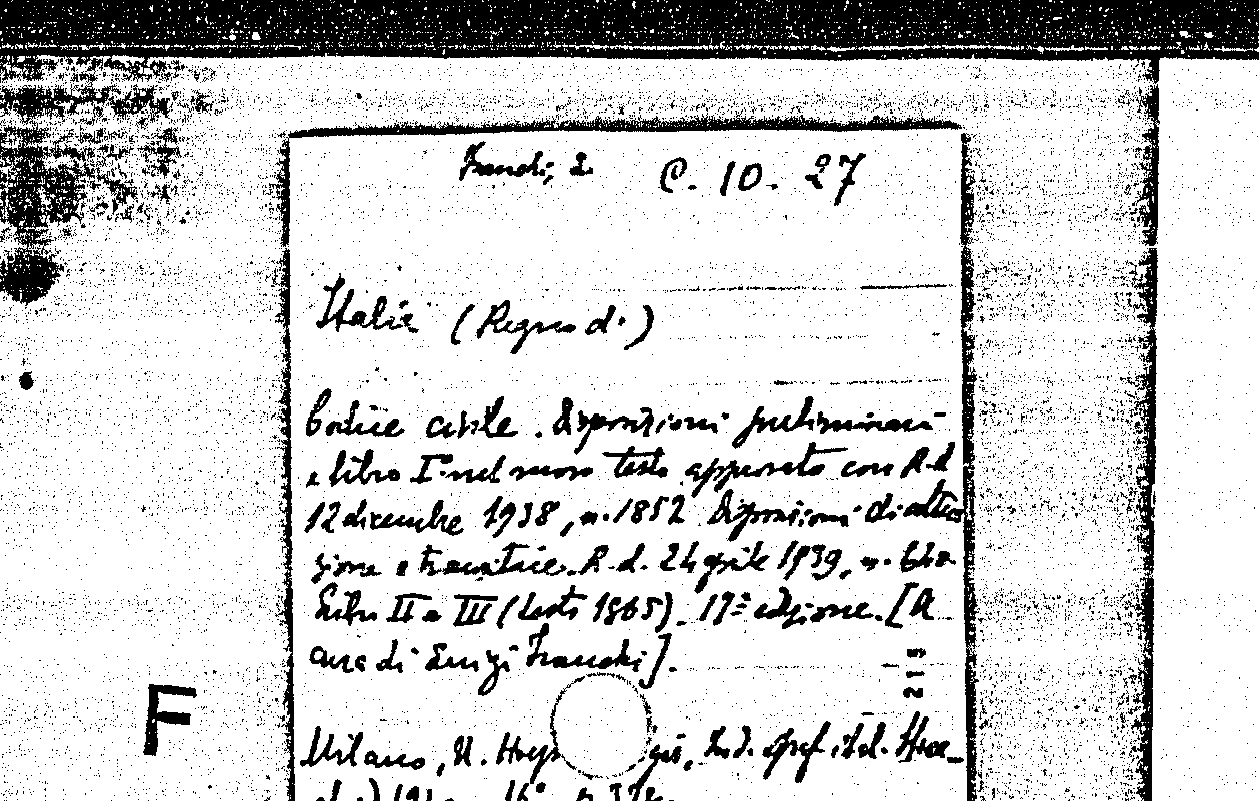 Franchi, L. C. 10. 27
Italia (Regno di)
Codice civile. Disposizioni preliminari
e libro I° nel nuovo testo approvato con R. d.
12 dicembre 1938, n. 1852 Disposizioni di attua
zione e transitorie. R. d. 24 aprile 1939, n. 640.
Libri II e III (testo 1865). 17ª edizione. [A
cura di Luigi Franchi].
215
F
Milano, U. Hoepli Ind. graf. ital. Stuc-